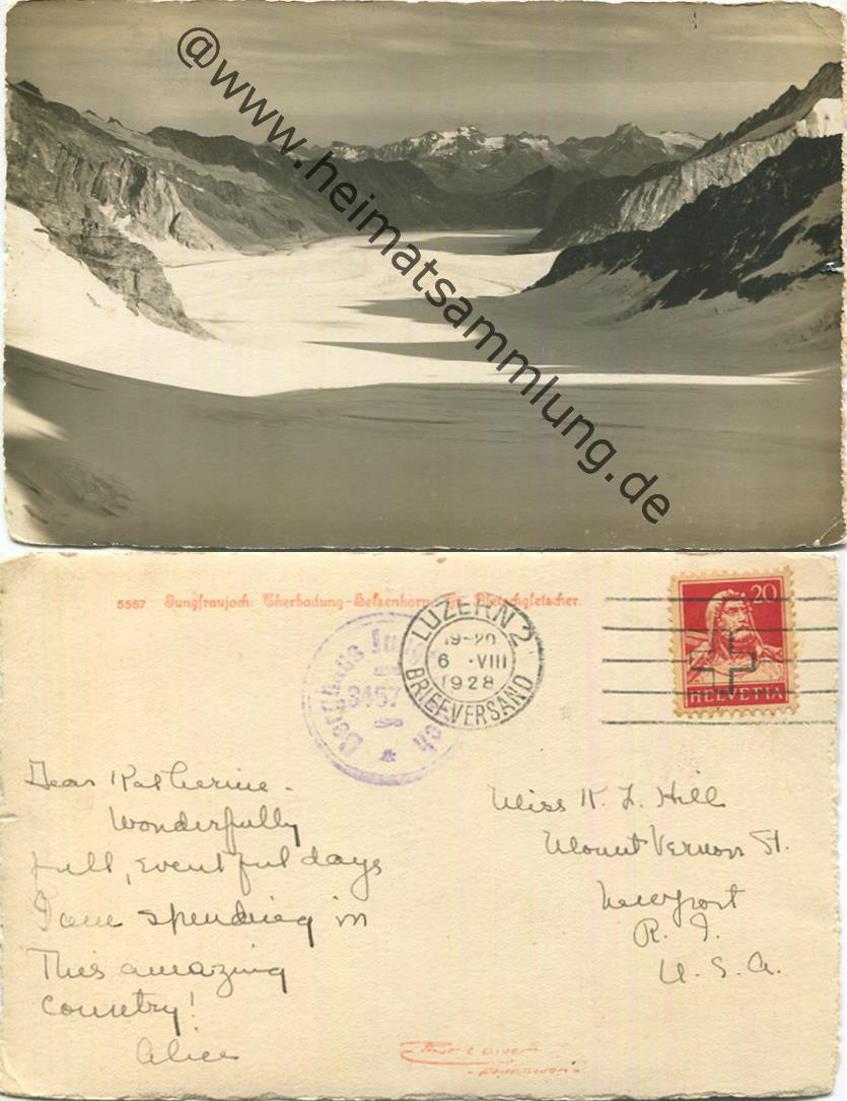 @www.heimatsammlung.de
5567 Jungfraujoch: Aletschgletscher.
LUZERN 2
19-20
6 . VIII
1928
BRIEFVERSAND
Berghaus Jungfraujoch
3457
20
HELVETIA
Dear Katherine -
Wonderfully
full, eventful days
I am spending in
This amazing
country!
Alice
Miss K. L. Hill
Mount Vernon St.
Newport
R. I.
U. S. A.